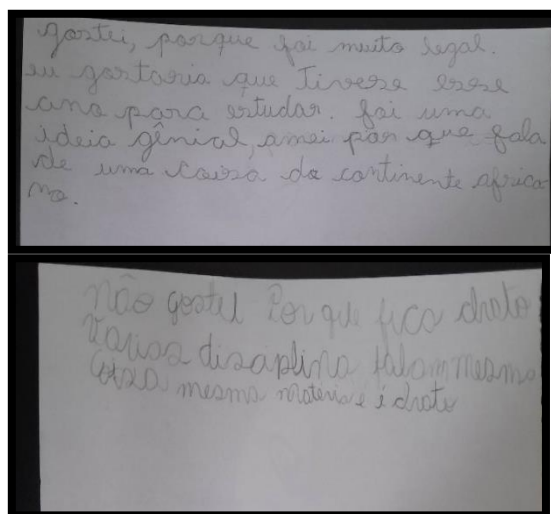 gostei, porque foi muito legal.
eu gostaria que Tivesse esse
ano para estudar. foi uma
ideia gênial, amei por que fala
de uma coisa do continente africa
no.
Não gostei Por que fica chato
varias disciplina falam mesma
coisa mesma materia e i chato